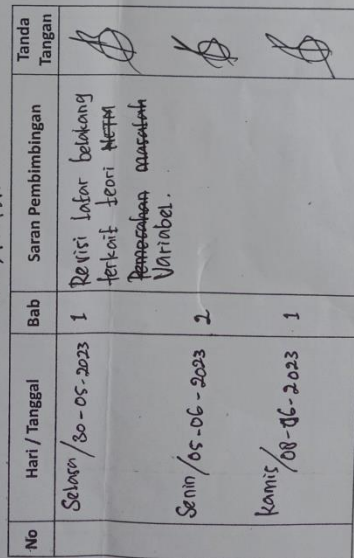 No Hari / Tanggal Bab Saran Pembimbingan Tanda Tangan
Selasa / 30-05-2023 1 Revisi latar belakang
terkait teori
Pemecahan masalah
Variabel.
Senin / 05-06-2023 2
Kamis / 08-06-2023 1